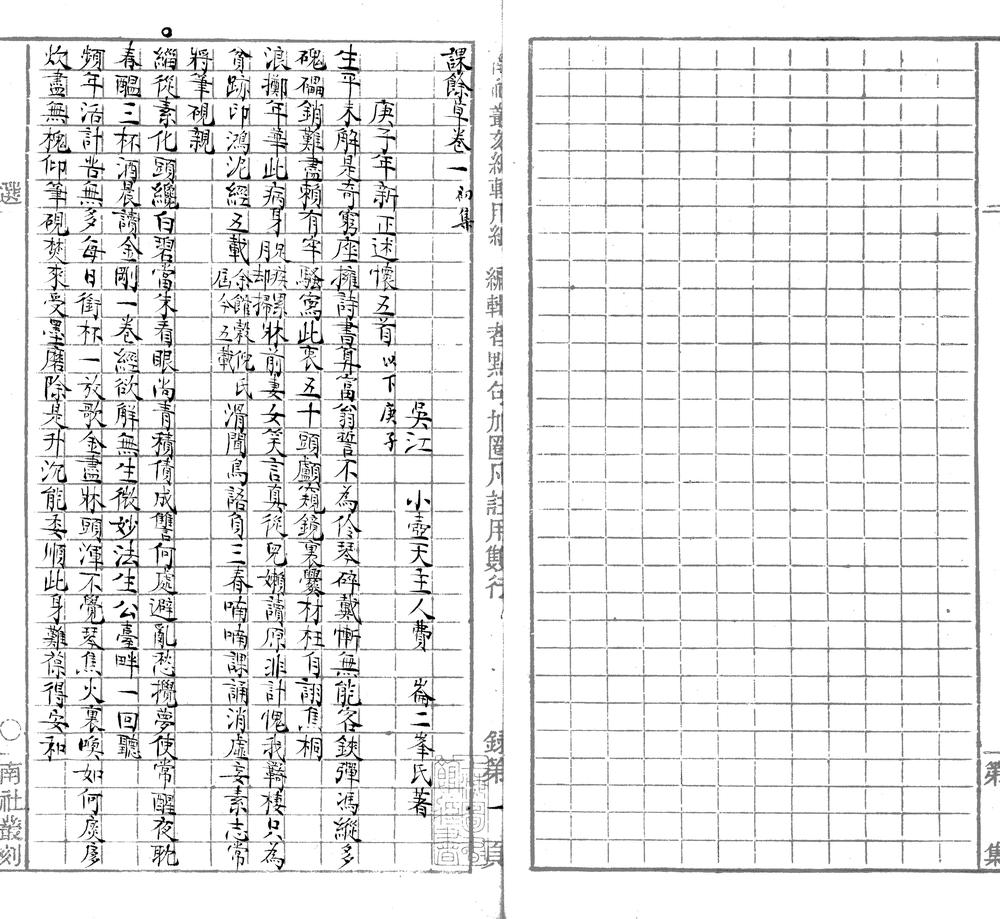 課餘草卷一 初集
吳江 小壺天主人費 崙二峯氏著
庚子年新正述懷五首 以下庚子
生平未解是奇窮座擁詩書算富翁誓不為伶琴碎戴慚無能客鋏彈馮縱多
磈磥銷難盡賴有牢騷寫此衷五十頭顱窺鏡裏爨材枉自詡焦桐
浪擲年華此病身 足疾縲却掃牀前妻女笑言真從兒嬾讀原非計愧我羇棲只為
貧跡印鴻泥經五載 余館穀倪氏屆今五載 滑聞鳥語負三春喃喃課誦消虛妄素志常
將筆硯親
緇從素化頭纔白碧當朱看眼尚青積債成讐何處避亂愁攪夢使常醒夜耽
春醞三杯酒晨讀金剛一卷經欲解無生微妙法生公臺畔一回聽
頻年活計苦無多每日銜杯一放歌金盡牀頭渾不覺琴焦火裏喚如何扊扅
炊盡無槐仰筆硯焚來受墨磨除是升沉能委順此身難葆得安和
編輯者點句加圈凡註用雙行
錄第 一 頁
選
南社叢刻
第 集